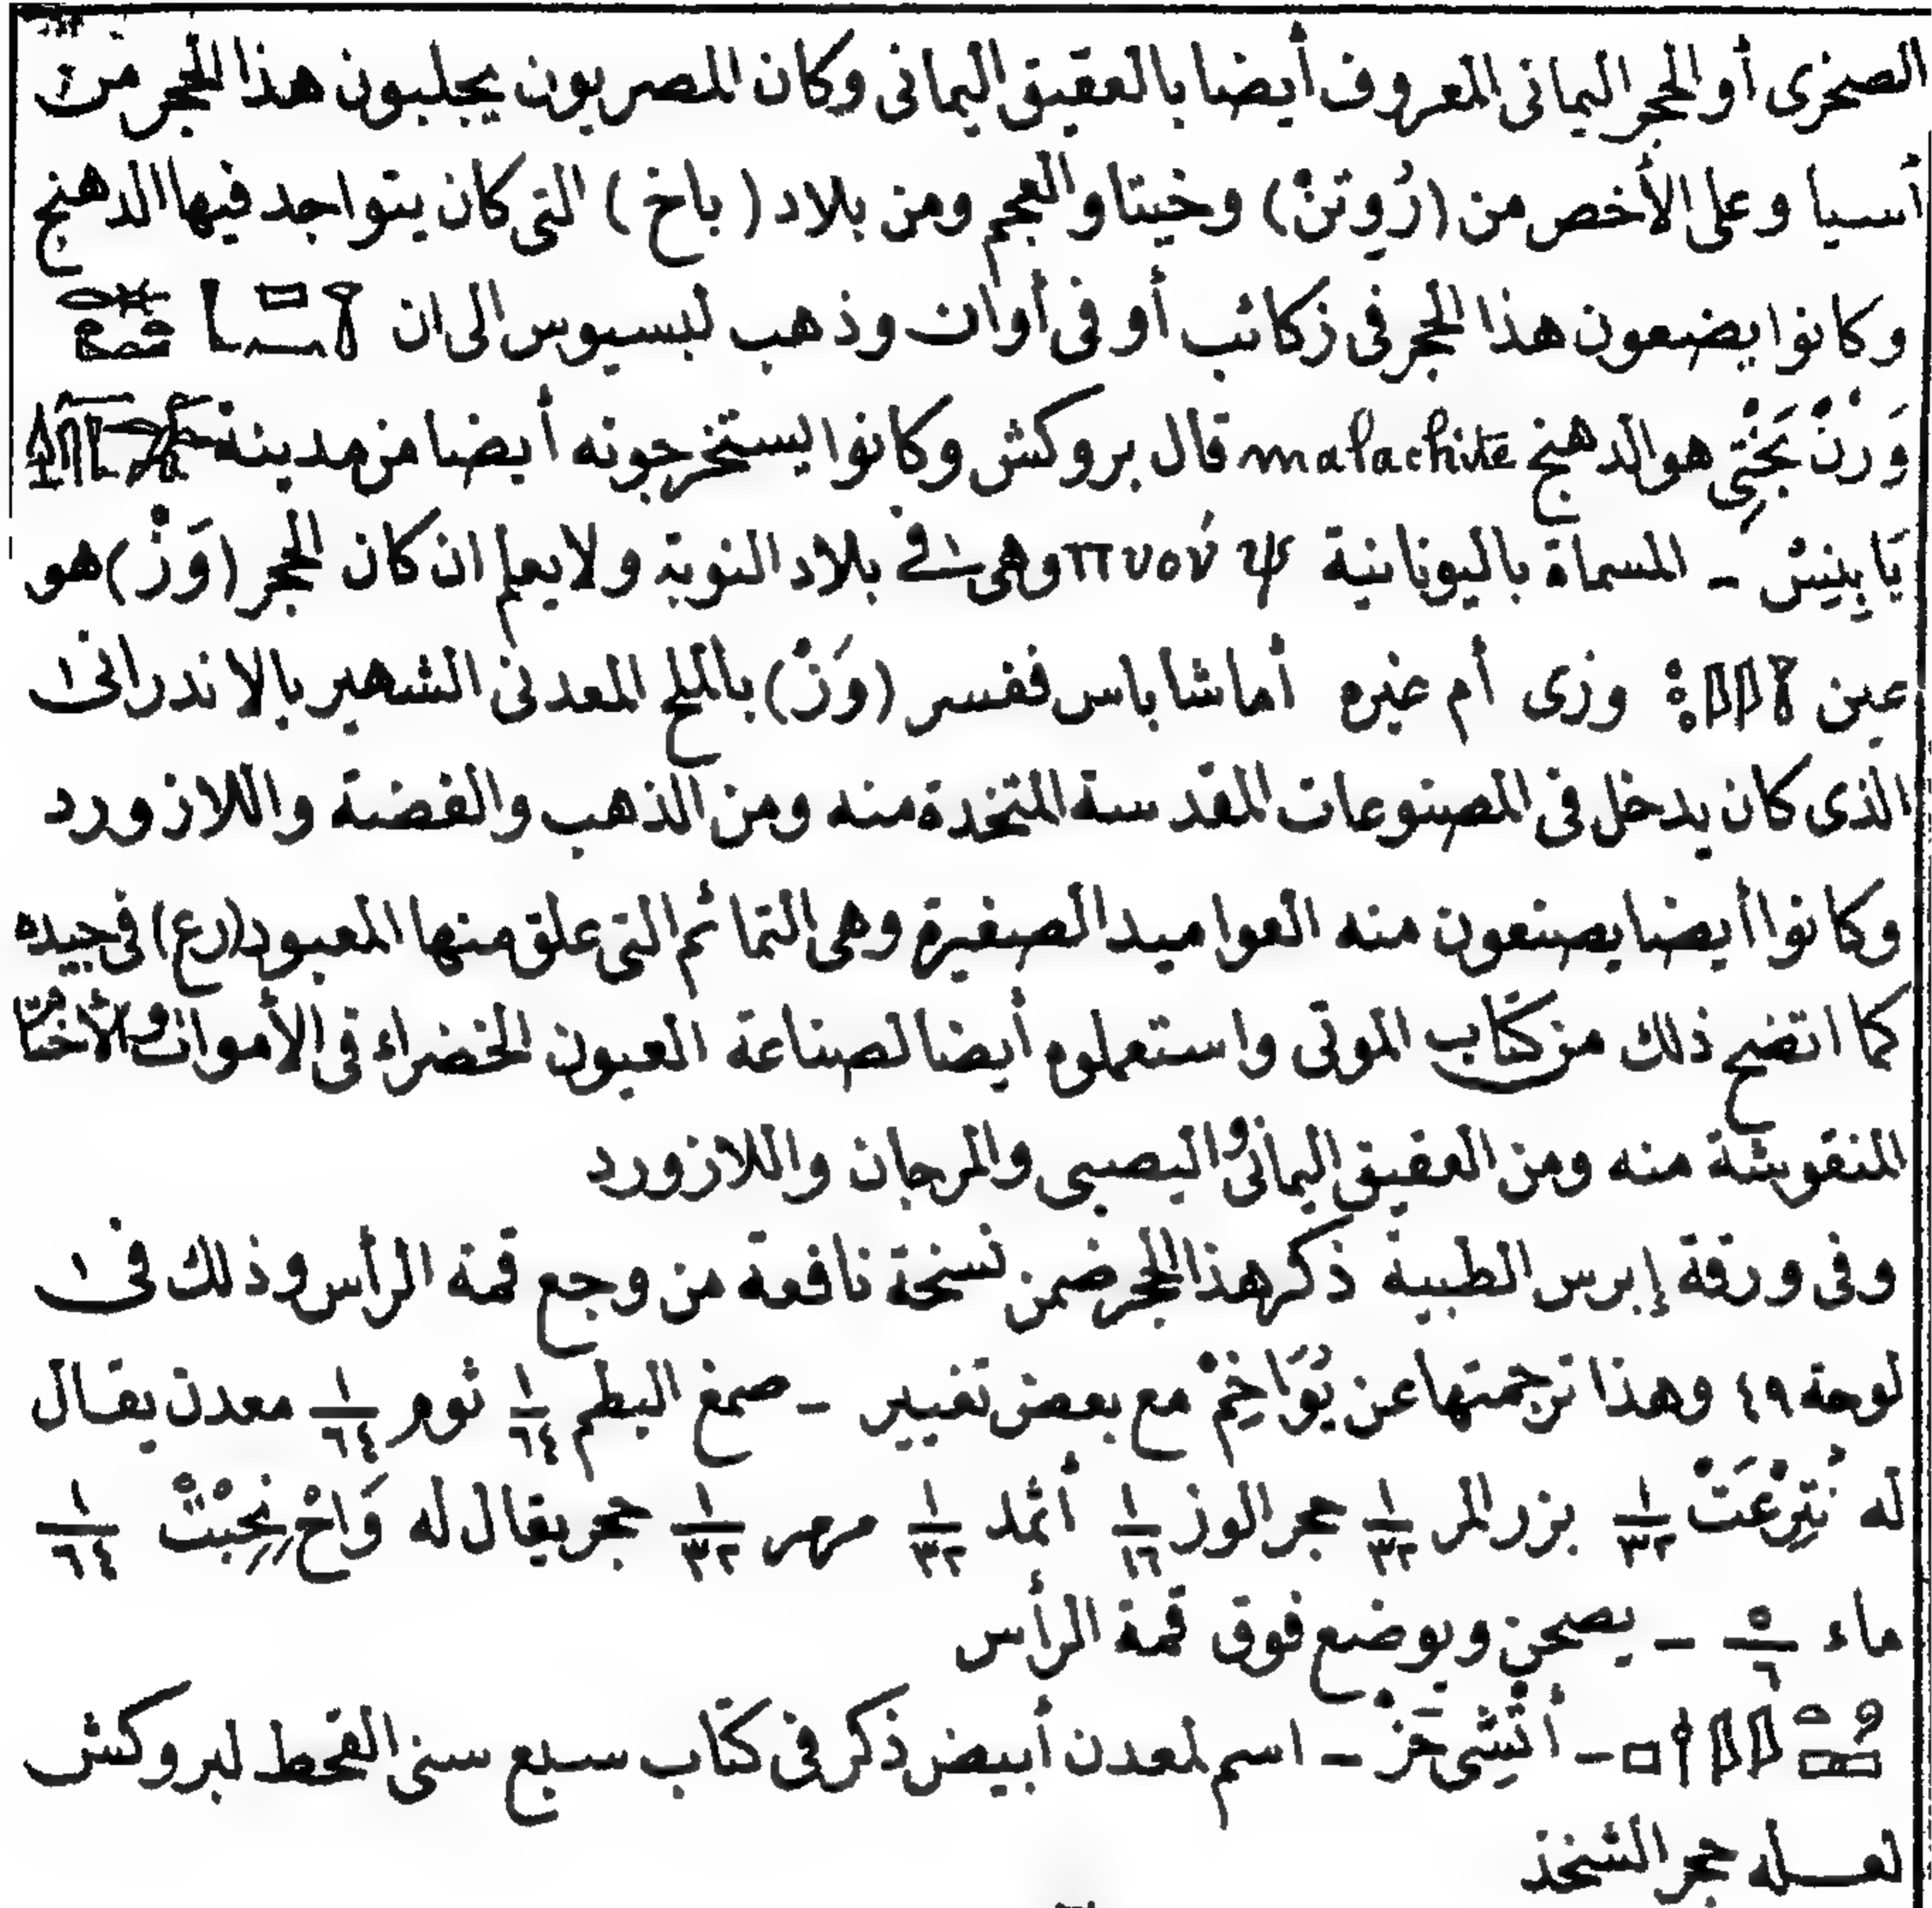 الصخرى أو الحجر اليمانى المعروف أيضا بالعقيق اليمانى وكان المصريون يجلبون هذا الحجر من
أسيا وعلى الأخص من (رُوِتنْ) وخيتا والعجم ومن بلاد (باخ) التى كان يتواجد فيها الدهنج
وكانوا يضعون هذا الحجر فى زكائب أو فى أوان وذهب لبسيوس الى ان
وَرنْ بَخْتِى هو الدهنج malachite قال بروكش وكانوا يستخرجونه أيضا من مدينة
يَابِنِسْ - المسماة باليونانية πνούψ وهى فى بلاد النوبة ولا يعلم ان كان الحجر (وَزْ) هو
عين وزى أم غيره أما شاباس ففسر (وَزْ) بالملح المعدنى الشهير بالاندرانى
الذى كان يدخل فى المصنوعات المقدسة المتخذة منه ومن الذهب والفضة واللازورد
وكانوا أيضا يصنعون منه العواميد الصغيرة وهى التمائم التى علق منها المعبود (رع) فى جيده
كما اتضح ذلك من كتاب الموتى واستعملوه أيضا لصناعة العيون الخضراء فى الأموات والأختا
المنقوشة منه ومن العقيق اليمانى واليصبى والمرجان واللازورد
وفى ورقة إبرس الطبية ذكر هذا الحجر ضمن نسخة نافعة من وجع قمة الرأس وذلك فى
لوحة ٤٩ وهذا ترجمتها عن يُوَاخِمْ مع بعض تغيير - صمغ البطم ١/٦٤ ثوم ١/٦٤ معدن يقال
له ١/٣٢ بزر المر ١/٣٢ حجر الوز ١/١٦ أثمد ١/٣٢ مهر ١/٣٢ حجر يقال له ١/٦٤
ماء ٥/٦ - يصحن ويوضع فوق قمة الرأس
- اسم لمعدن أبيض ذكر فى كتاب سبع سنى القحط لبروكش
لعله حجر الشخذ